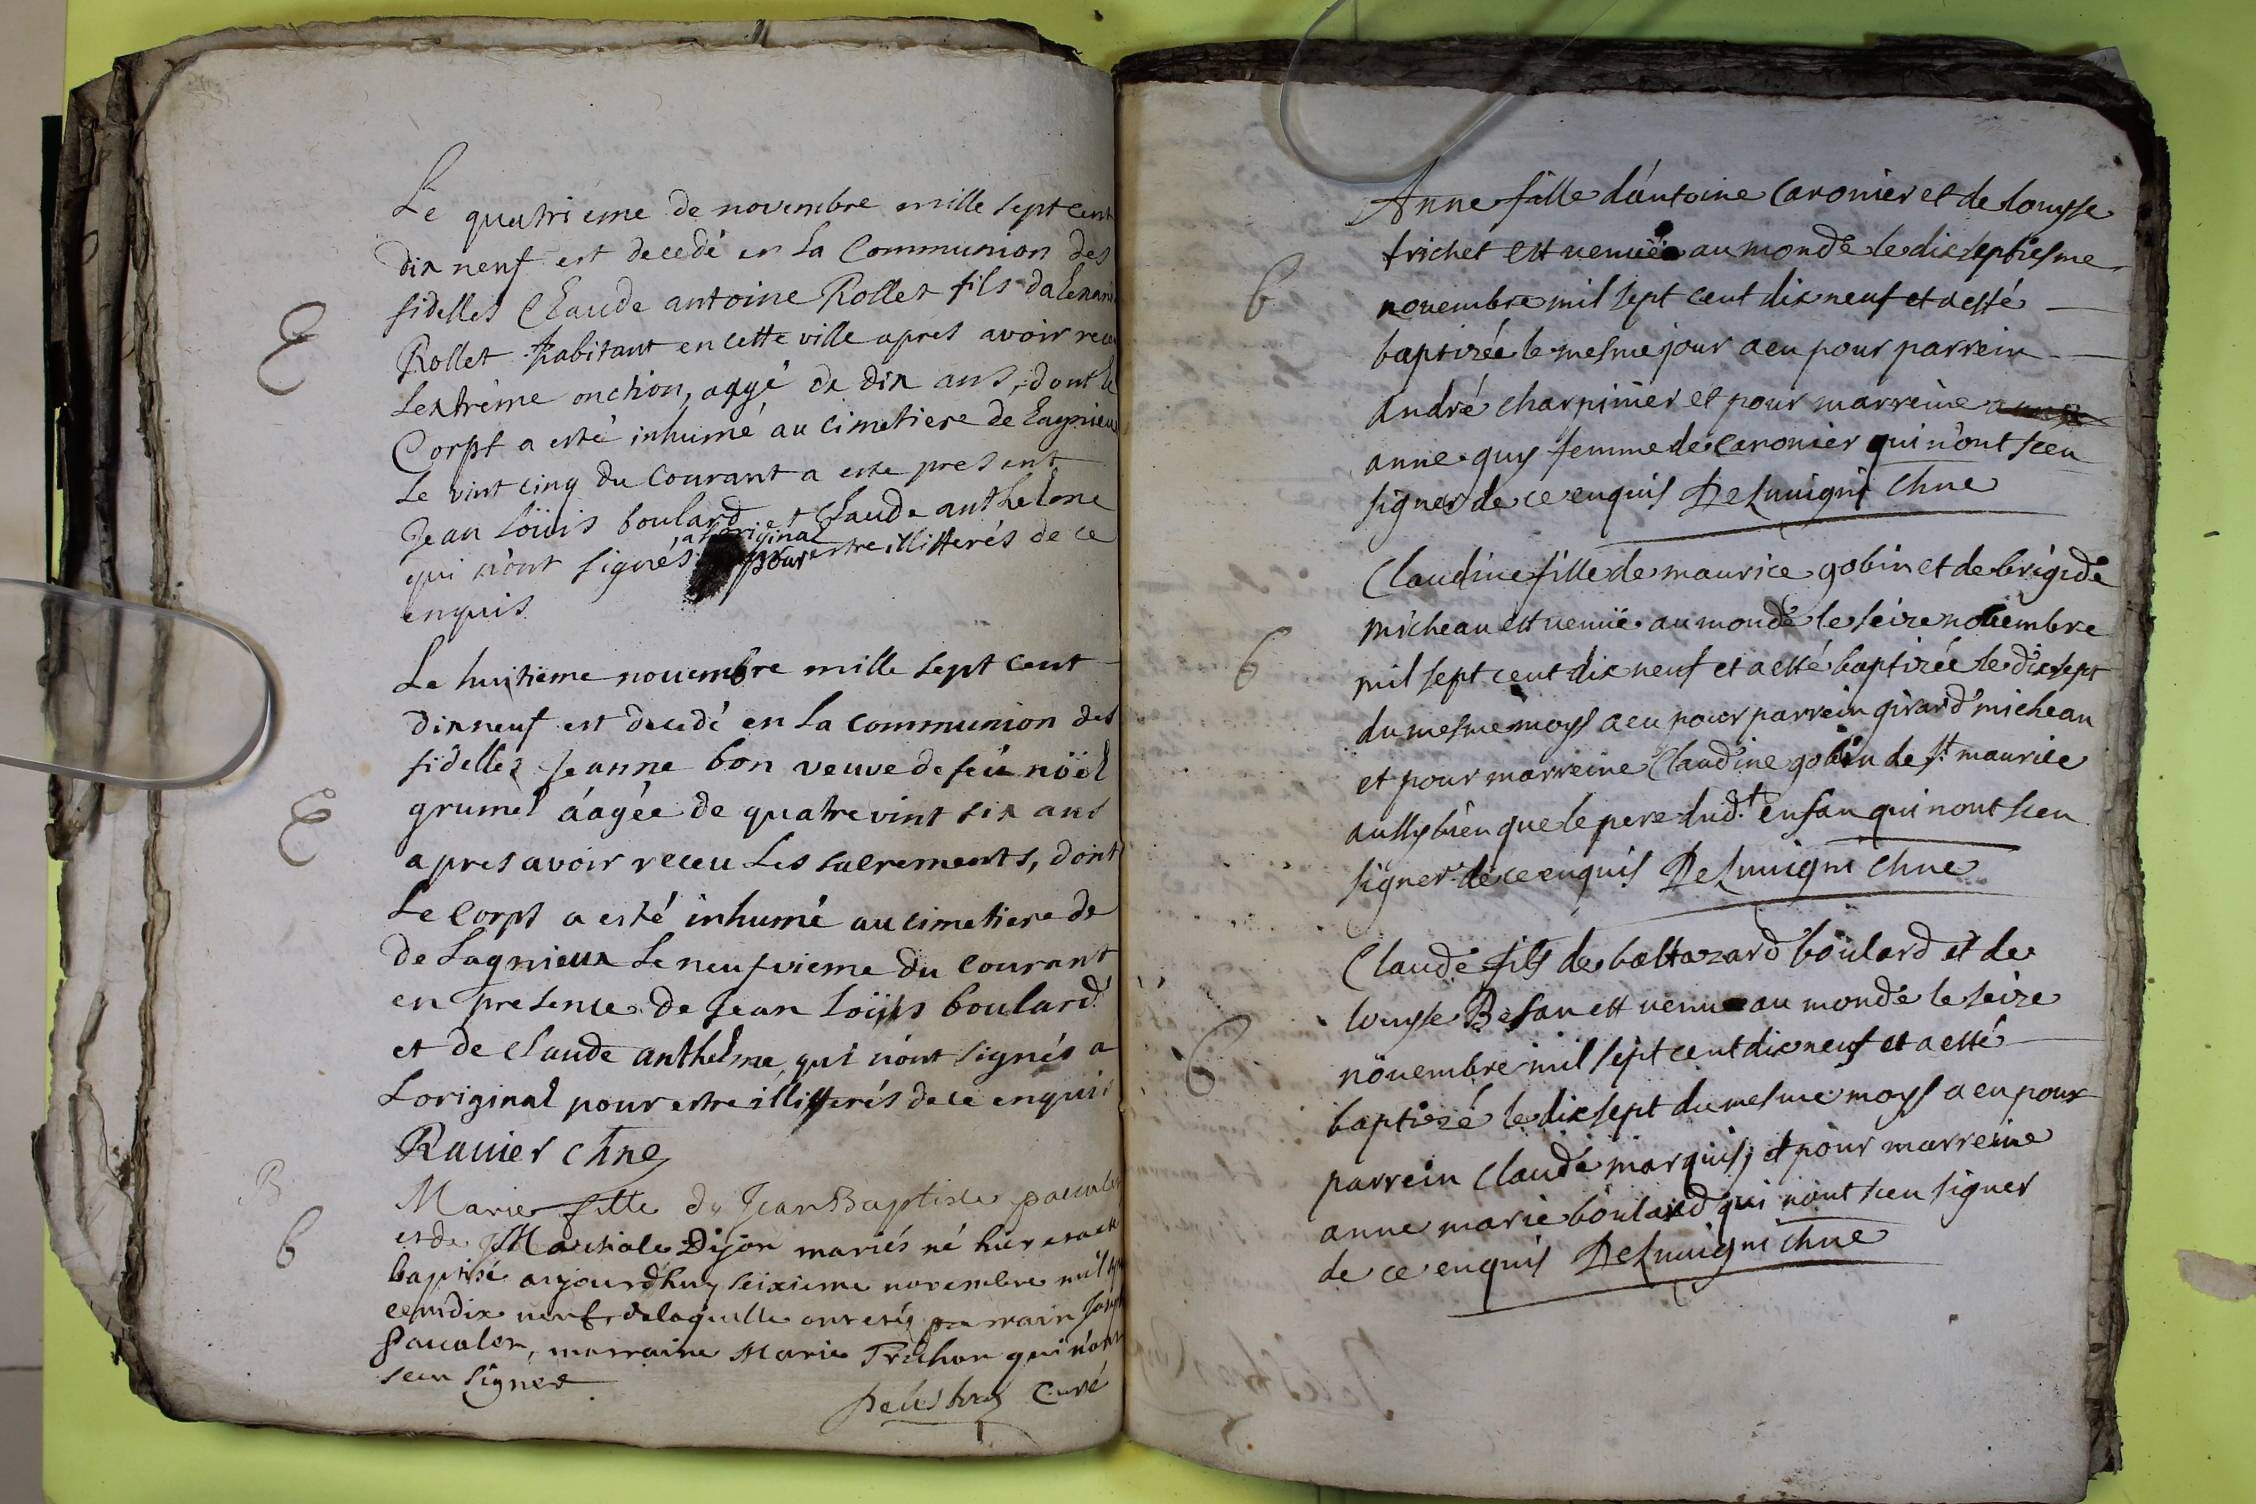 Le quatrieme de novembre mille sept cent
dix neuf est decedé en la Communion des
fidelles Claude antoine Rollet fils
E
Rollet habitant en cette ville apres avoir receu
Lextrème onction, aagé de dix ans, dont le
Corps a esté inhumé au cimetiere de Lagnieu
Le vint cinq du Courant a este present
Jean Loüis boulard et Claude anthelme
qui n'ont signés a loriginal pour estre illitterés de ce
enquis
Le huitieme novembre mille sept cent
dixneuf est decedé en la communion des
fidelles Jeanne bon veuve de feü nöel
grumel áagée de quatre vint six ans
E
apres avoir receu Les sacrements, dont
Le Corps a esté inhumé au cimetiere de
de Lagnieux Le neufvieme du Courant
en presence de Jean Loüis boulard
et de Claude anthelme qui n'ont signés a
Loriginal pour estre illitterés de ce enquis
Ravier chne
B
Marie fille de Jean Baptiste
b
et de Martiale Dijon mariés né hier et a esté
baptisé aujourdhuy seixieme novembre mil sept
cent dix neuf, de laquelle ont esté parrain Joseph
Paucalet, marraine Marie Truchon qui n'ont
sceu signer
Curé
Anne fille d'antoine Caronier et de louyse
trichet est venuë au monde le dixseptiesme
b
novembre mil sept cent dix neuf et a esté
baptizée le mesme jour a eu pour parrein
andré charpinier et pour marreine
anne guy femme de Caronier qui n'ont sceu
signer de ce enquis Delmuigni chne
Claudine fille de maurice gobin et de brigide
micheau est venuë au monde le seize novembre
b
mil sept cent dix neuf et a esté baptizée le dixsept
du mesme moys a eu pour parrein girard micheau
et pour marreine Claudine gobin de st maurice
aussy bien que le pere dud.t enfan qui nont sceu
signer de ce enquis Delmuigni chne
Claude fils de baltazard boulard et de
louyse Besan est venu au monde le seize
b
novembre mil sept cent dix neuf et a esté
baptizé le dixsept du mesme moys a eu pour
parrein Claude marquis, et pour marreine
anne marie boulard qui nont sceu signer
de ce enquis Delmuigni chne